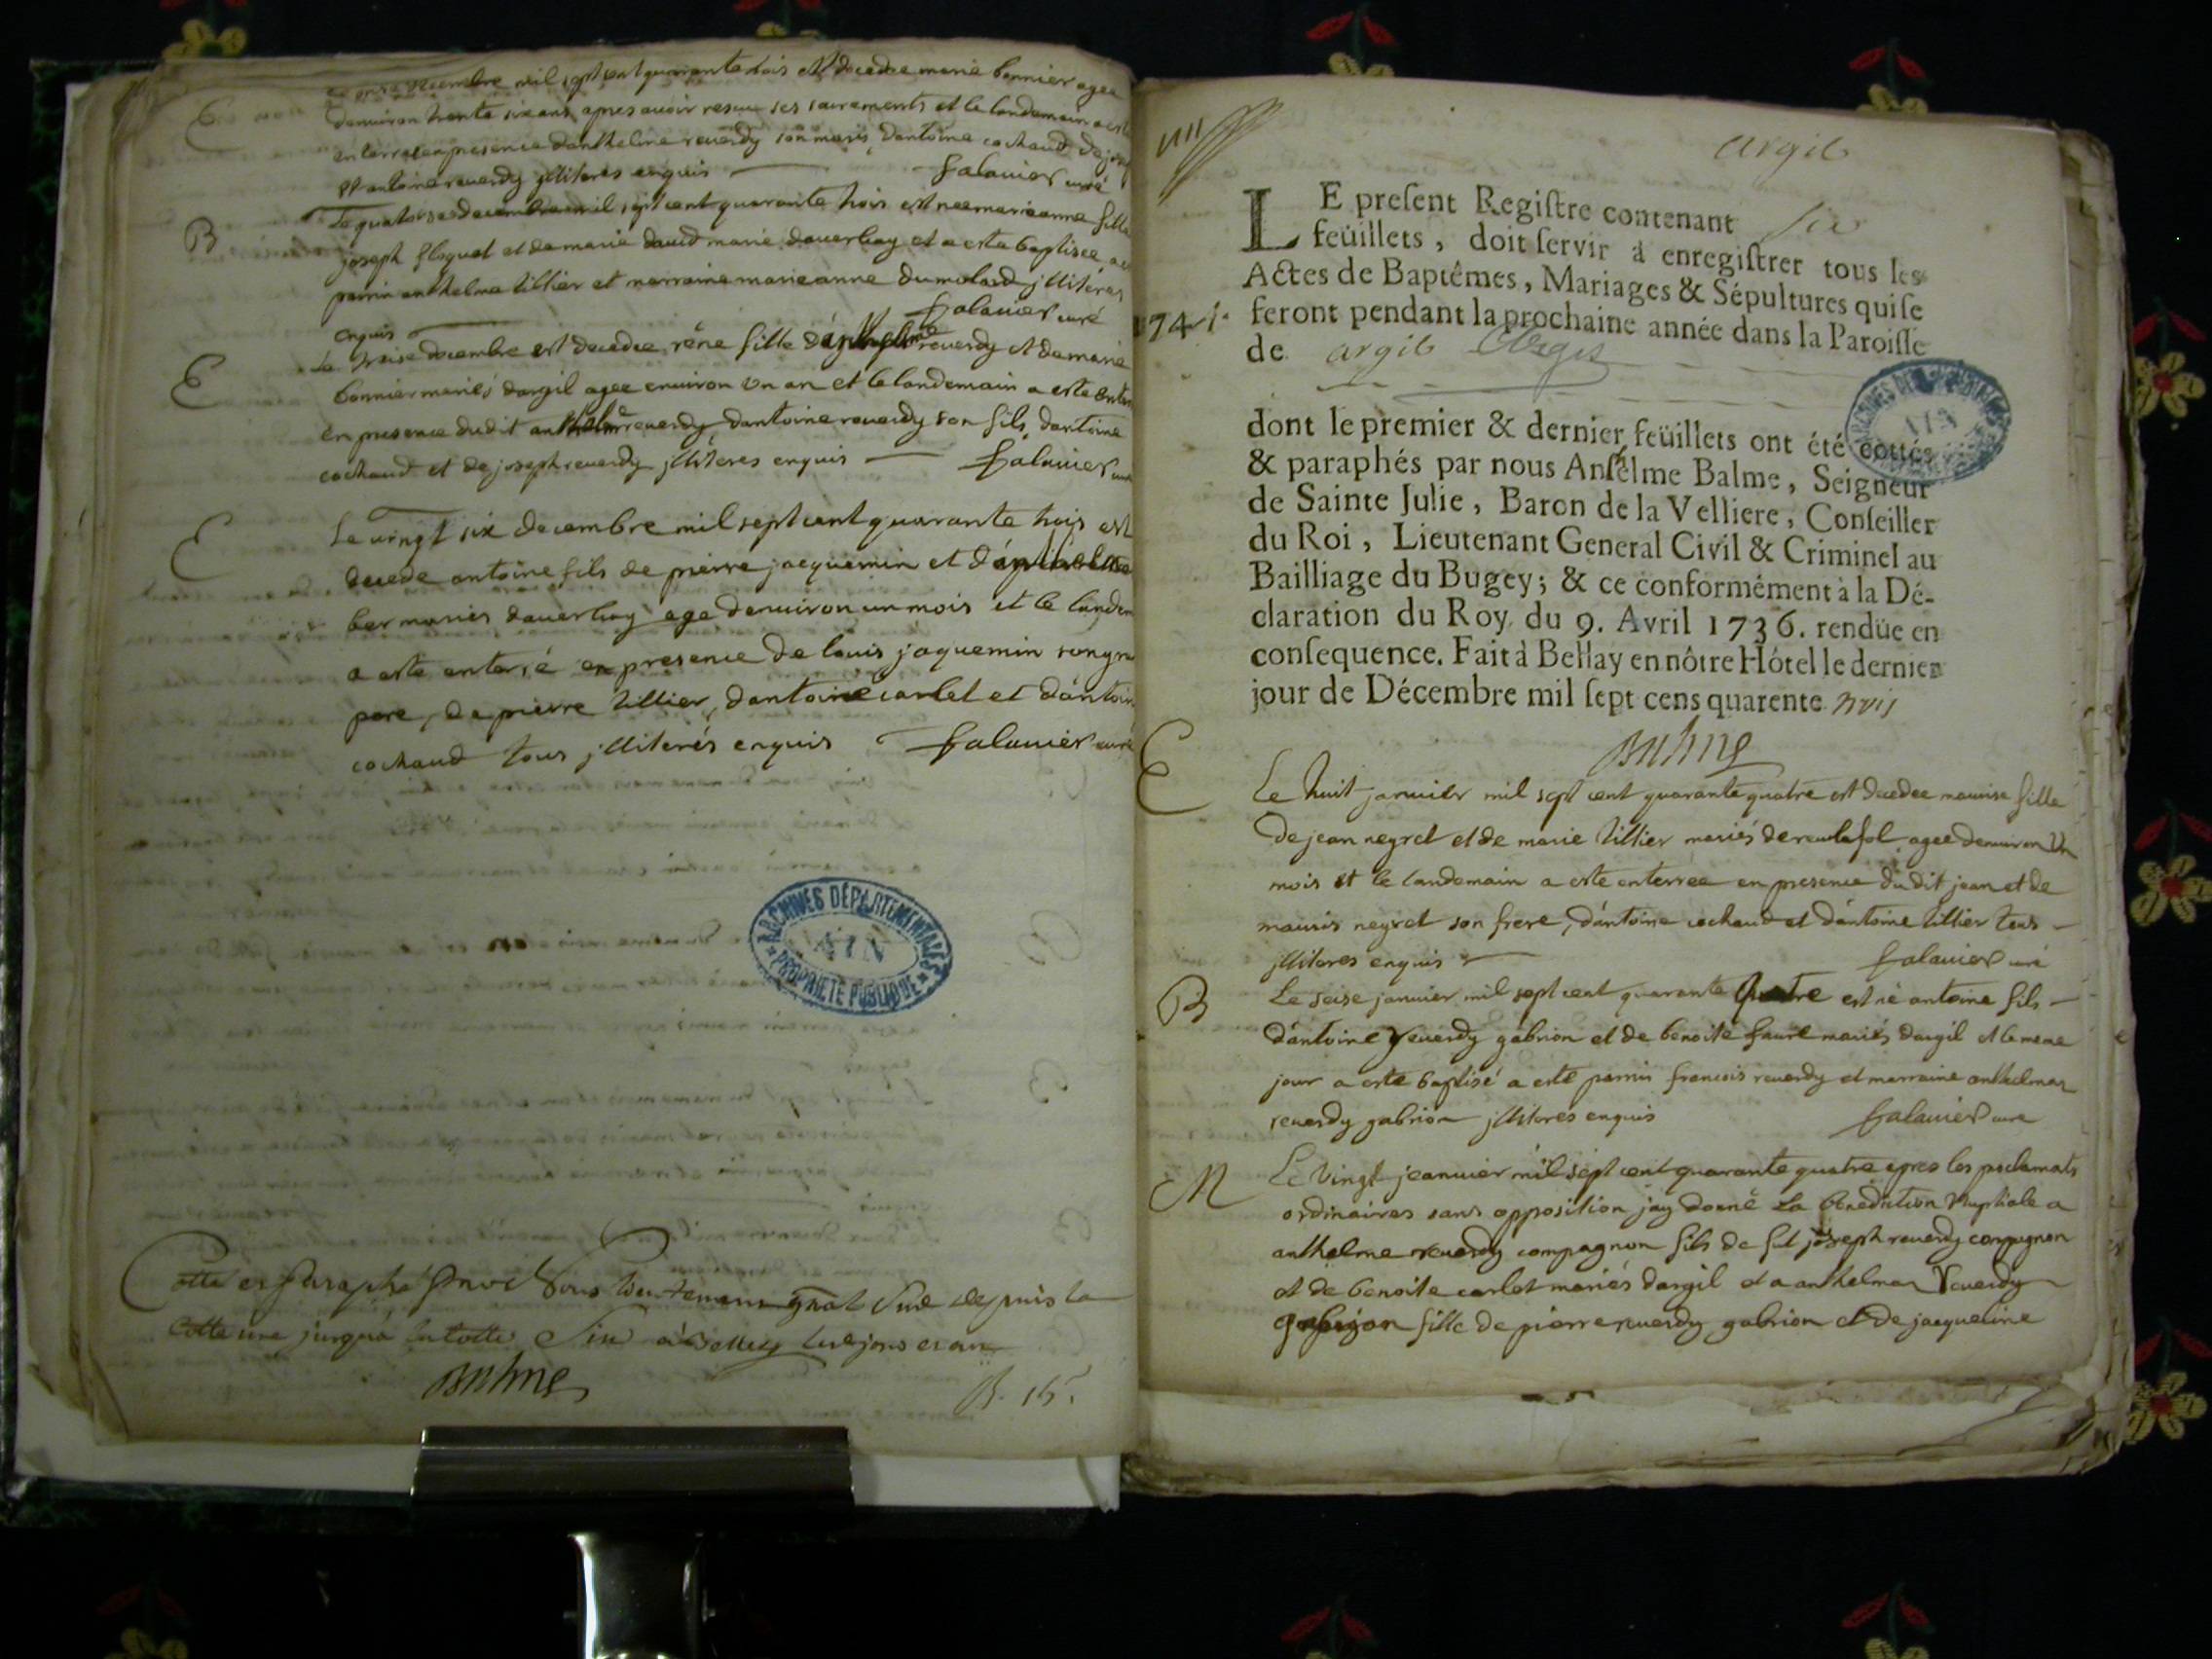 decembre mil sept cent quarante trois est decedee marie bonnier agee
denviron trente six ans apres avoir resceu ses sacrements et le landemain a esté
enterree en presence danthelme reverdy son maris, dantoine cochaud de
et antoine reverdy illiteres enquis
curé
B
Le quatorse decembre mil sept cent quarante trois est nee marieanne fille
joseph floquet et de marie david mariés et a esté baptisee
parrin anthelme tillier et marraine marieanne dumolard illiteres
enquis
curé
E
Le treise decembre est decedee réne fille d'anthelme reverdy et de marie
bonnier mariés dargil agee environ un an et le landemain a esté
en presence dudit anthelme reverdy, dantoine reverdy son fils, dantoine
cochaud et de joseph reverdy illiteres enquis
E
Le vingt six decembre mil sept cent quarante trois est
decede antoine fils de pierre jacquemin et d'anthelme
ber mariés age denviron un mois et le
a esté enterré en presence de louis jaquemin son
pere, de pierre tillier, dantoine carlet et d'antoine
cochaud tous illiterés enquis
curé
ARCHIVES DÉPARTEMENTALES
AIN
PROPRIETE PUBLIQUE
Cotté et Paraphé Par Nous Lieutenant gnal Sud depuis la
Cotte une jusqu'à la Cotte Six à Belley les jour et an
Balme
B. 15.
argil
LE preſent Regiſtre contenant six
feüillets, doit ſervir à enregiſtrer tous les
Actes de Baptêmes, Mariages & Sépultures qui ſe
feront pendant la prochaine année dans la Paroiſſe
de argil Argis
dont le premier & dernier feüillets ont été cottés
& paraphés par nous Anſelme Balme, Seigneur
de Sainte Julie, Baron de la Velliere, Conſeiller
du Roi, Lieutenant General Civil & Criminel au
Bailliage du Bugey; & ce conformément à la Dé-
claration du Roy du 9. Avril 1736. rendüe en
conſequence. Fait à Bellay en nôtre Hôtel le dernier
jour de Décembre mil ſept cens quarente trois
Balme
E
Le huit janvier mil sept cent quarante quatre est decedee maurise fille
de jean negret et de marie tillier mariés de agee denviron un
mois et le landemain a esté enterree en presence du dit jean et de
mauris negret son frere, d'antoine cochaud et d'antoine tillier tous
illiteres enquis
curé
B
Le seise janvier mil sept cent quarante Quatre est né antoine fils
d'antoine reverdy gabrion et de benoite faure mariés dargil et le meme
jour a esté baptisé a esté parrin francois reverdy et marraine anthelmaz
reverdy gabrion illiteres enquis
curé
M
Le vingt jeanvier mil sept cent quarante quatre apres les proclamats
ordinaires sans opposition jay donné la benediction nuptiale a
anthelme reverdy compagnon fils de fut joseph reverdy compagnon
et de benoite carlet mariés dargil et a anthelmaz reverdy
gabrion fille de pierre reverdy gabrion et de jacqueline